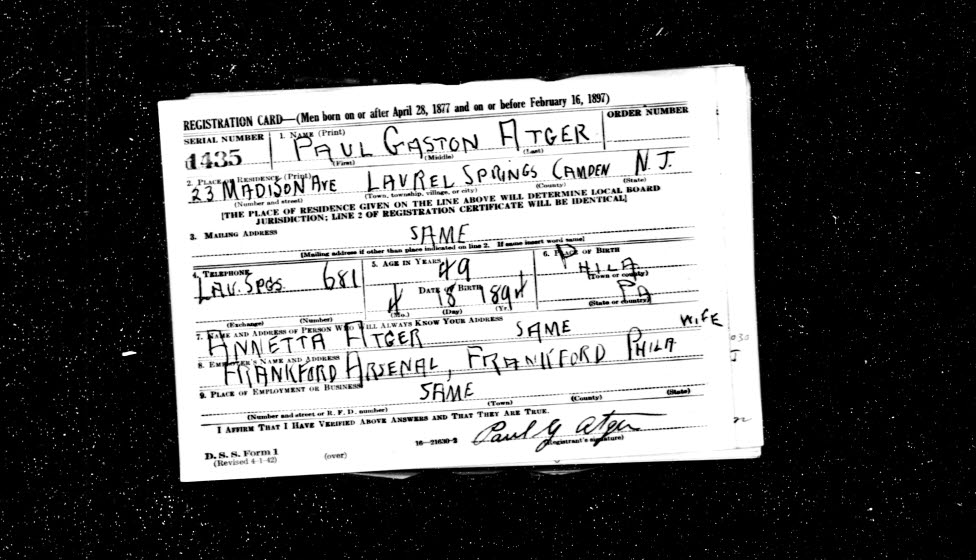 REGISTRATION CARD—(Men born on or after April 28, 1877 and on or before February 16, 1897)
SERIAL NUMBER 1. NAME (Print) ORDER NUMBER
1435 PAUL GASTON ATGER
(First) (Middle) (Last)
2. PLACE OF RESIDENCE (Print)
23 MADISON AVE LAUREL SPRINGS CAMDEN N.J.
(Number and street) (Town, township, village, or city) (County) (State)
[THE PLACE OF RESIDENCE GIVEN ON THE LINE ABOVE WILL DETERMINE LOCAL BOARD
JURISDICTION; LINE 2 OF REGISTRATION CERTIFICATE WILL BE IDENTICAL]
3. MAILING ADDRESS
SAME
[Mailing address if other than place indicated on line 2. If same insert word same]
4. TELEPHONE 5. AGE IN YEARS 6. PLACE OF BIRTH
LAU. SPGS. 681 49 PHILA
(Town or county)
DATE OF BIRTH PA
4 18 1894 (State or country)
(Exchange) (Number) (Mo.) (Day) (Yr.)
7. NAME AND ADDRESS OF PERSON WHO WILL ALWAYS KNOW YOUR ADDRESS
ANNETTA ATGER SAME WIFE
8. EMPLOYER'S NAME AND ADDRESS
FRANKFORD ARSENAL, FRANKFORD PHILA
9. PLACE OF EMPLOYMENT OR BUSINESS
SAME
(Number and street or R. F. D. number) (Town) (County) (State)
I AFFIRM THAT I HAVE VERIFIED ABOVE ANSWERS AND THAT THEY ARE TRUE.
Paul G Atger
D. S. S. Form 1 16—21630-2 (Registrant's signature)
(Revised 4-1-42) (over)